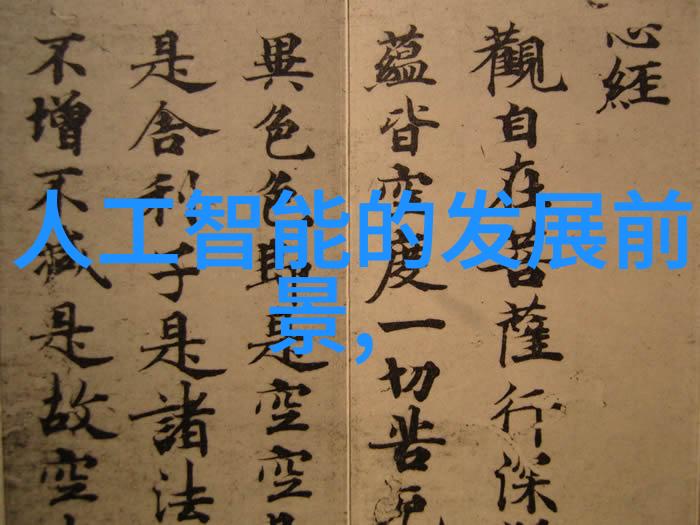 人工智能的发展前
景,
心經
觀自在菩薩行深
蘊皆空度一切苦厄
異色色即是空空
是舍利子是諸法
不增不減是故空